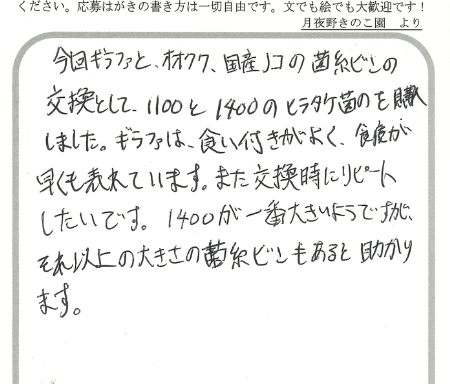 ください。応募はがきの書き方は一切自由です。文でも絵でも大歓迎です!
月夜野きのこ園 より
今回ギラファと、オオクワ、国産ノコの菌糸ビンの
交換として、1100と1400のヒラタケ菌のを購入
しました。ギラファは、食い付きがよく、食痕が
早くも表れています。また交換時にリピート
したいです。1400が一番大きいようですが、
それ以上の大きさの菌糸ビンもあると助かり
ます。